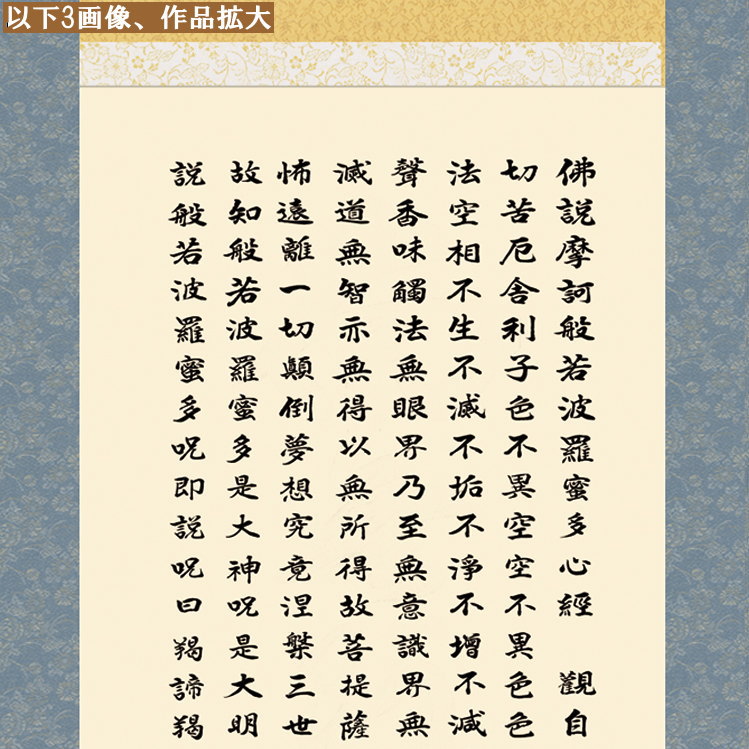 以下3画像、作品拡大
佛説摩訶般若波羅蜜多心經 觀自
切苦厄舎利子色不異空空不異色色
法空相不生不滅不垢不淨不增不減
聲香味觸法無眼界乃至無意識界無
滅道無智亦無得以無所得故菩提薩
怖遠離一切顛倒夢想究竟涅槃三世
故知般若波羅蜜多是大神呪是大明
説般若波羅蜜多呪即説呪曰羯諦羯